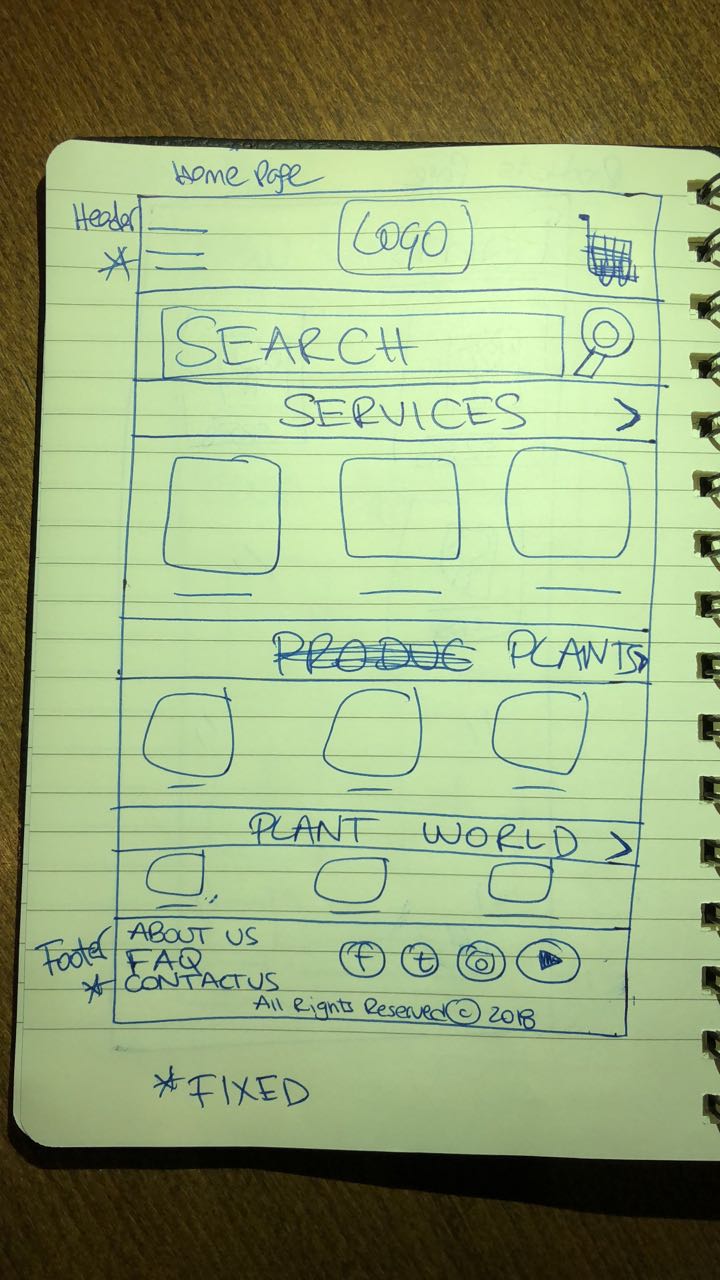 Home Page
Header
*
LOGO
SEARCH
SERVICES >
PRODUC PLANTS >
PLANT WORLD >
Footer
*
ABOUT US
FAQ
CONTACT US
f t
All Rights Reserved © 2018
* FIXED